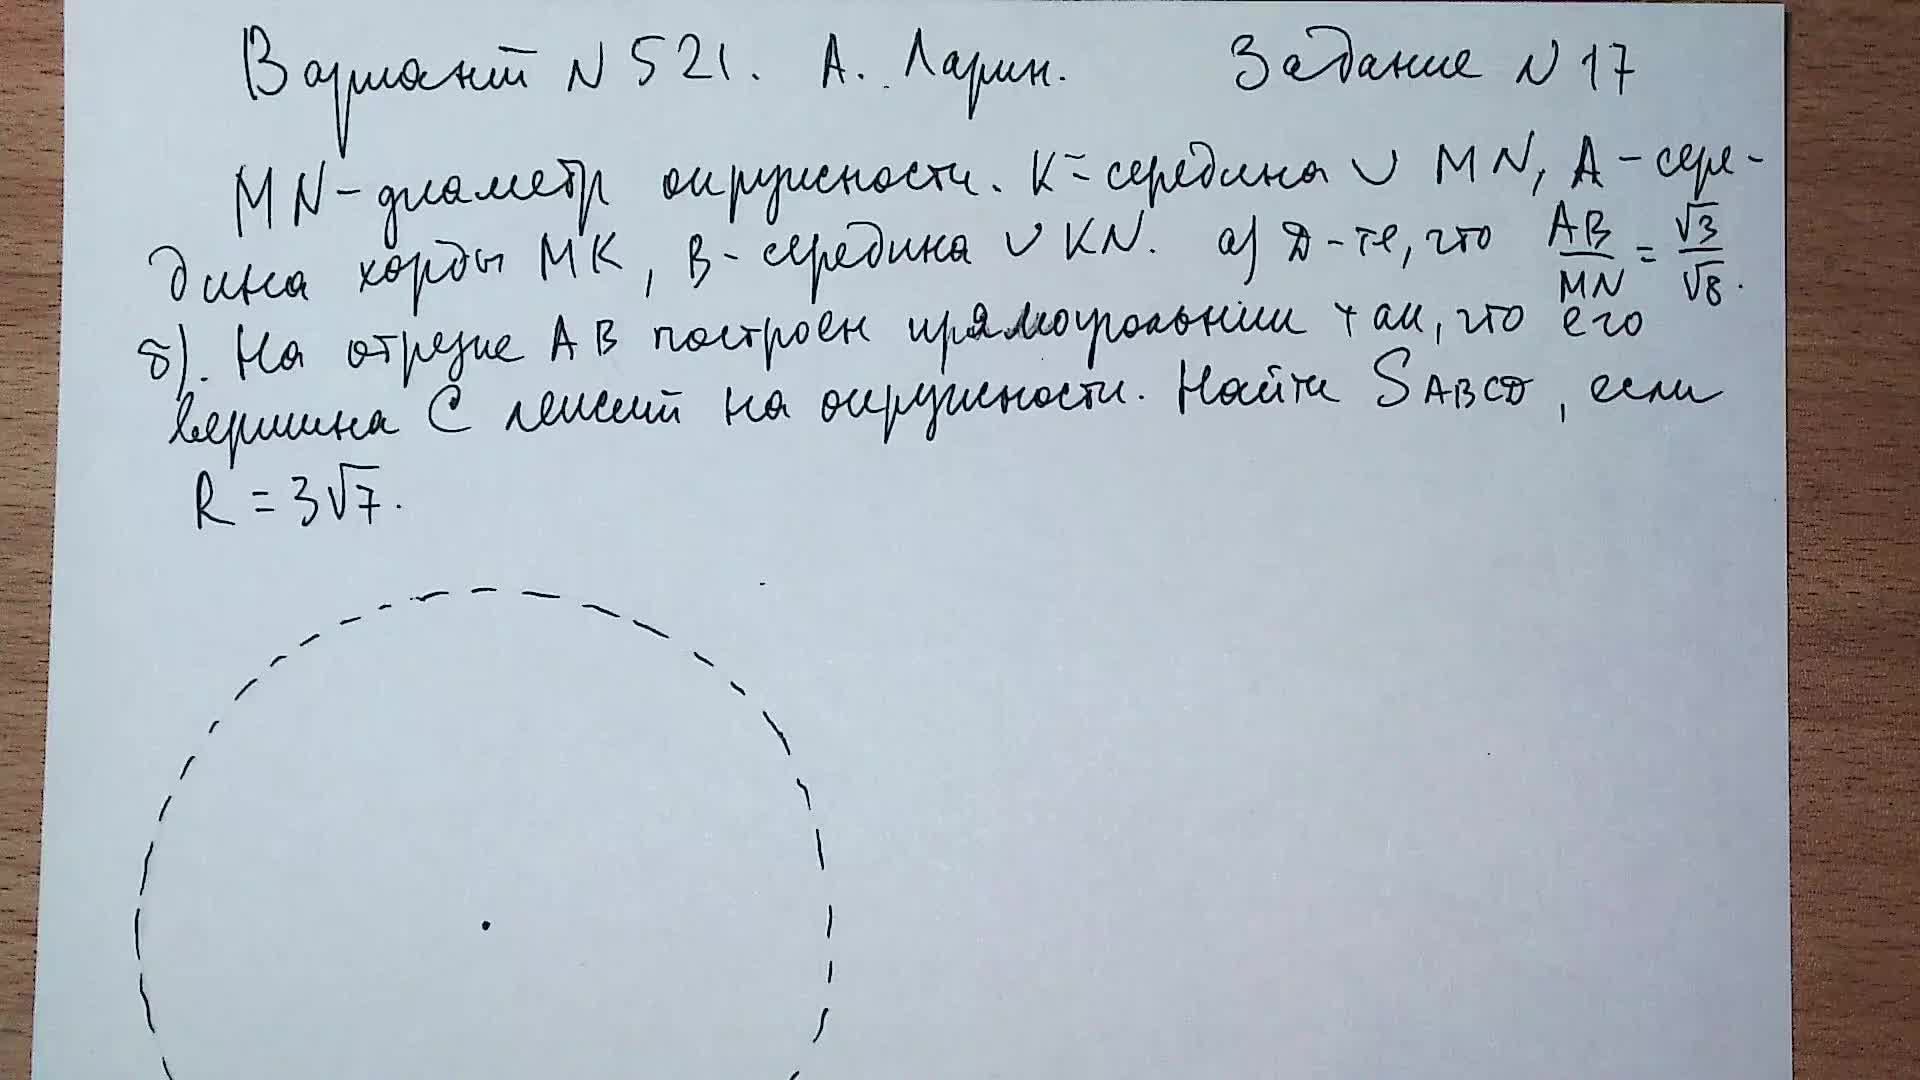 Вариант N 521. А. Ларин. Задание N 17
MN-диаметр окружности. K-середина ∪ MN, A-сере-
дина хорды MK, B-середина ∪ KN. а) Д-те, что AB/MN = √3/√8.
б). На отрезке AB построен прямоугольник так, что его
вершина C лежит на окружности. Найти SABCD, если
R = 3√7.